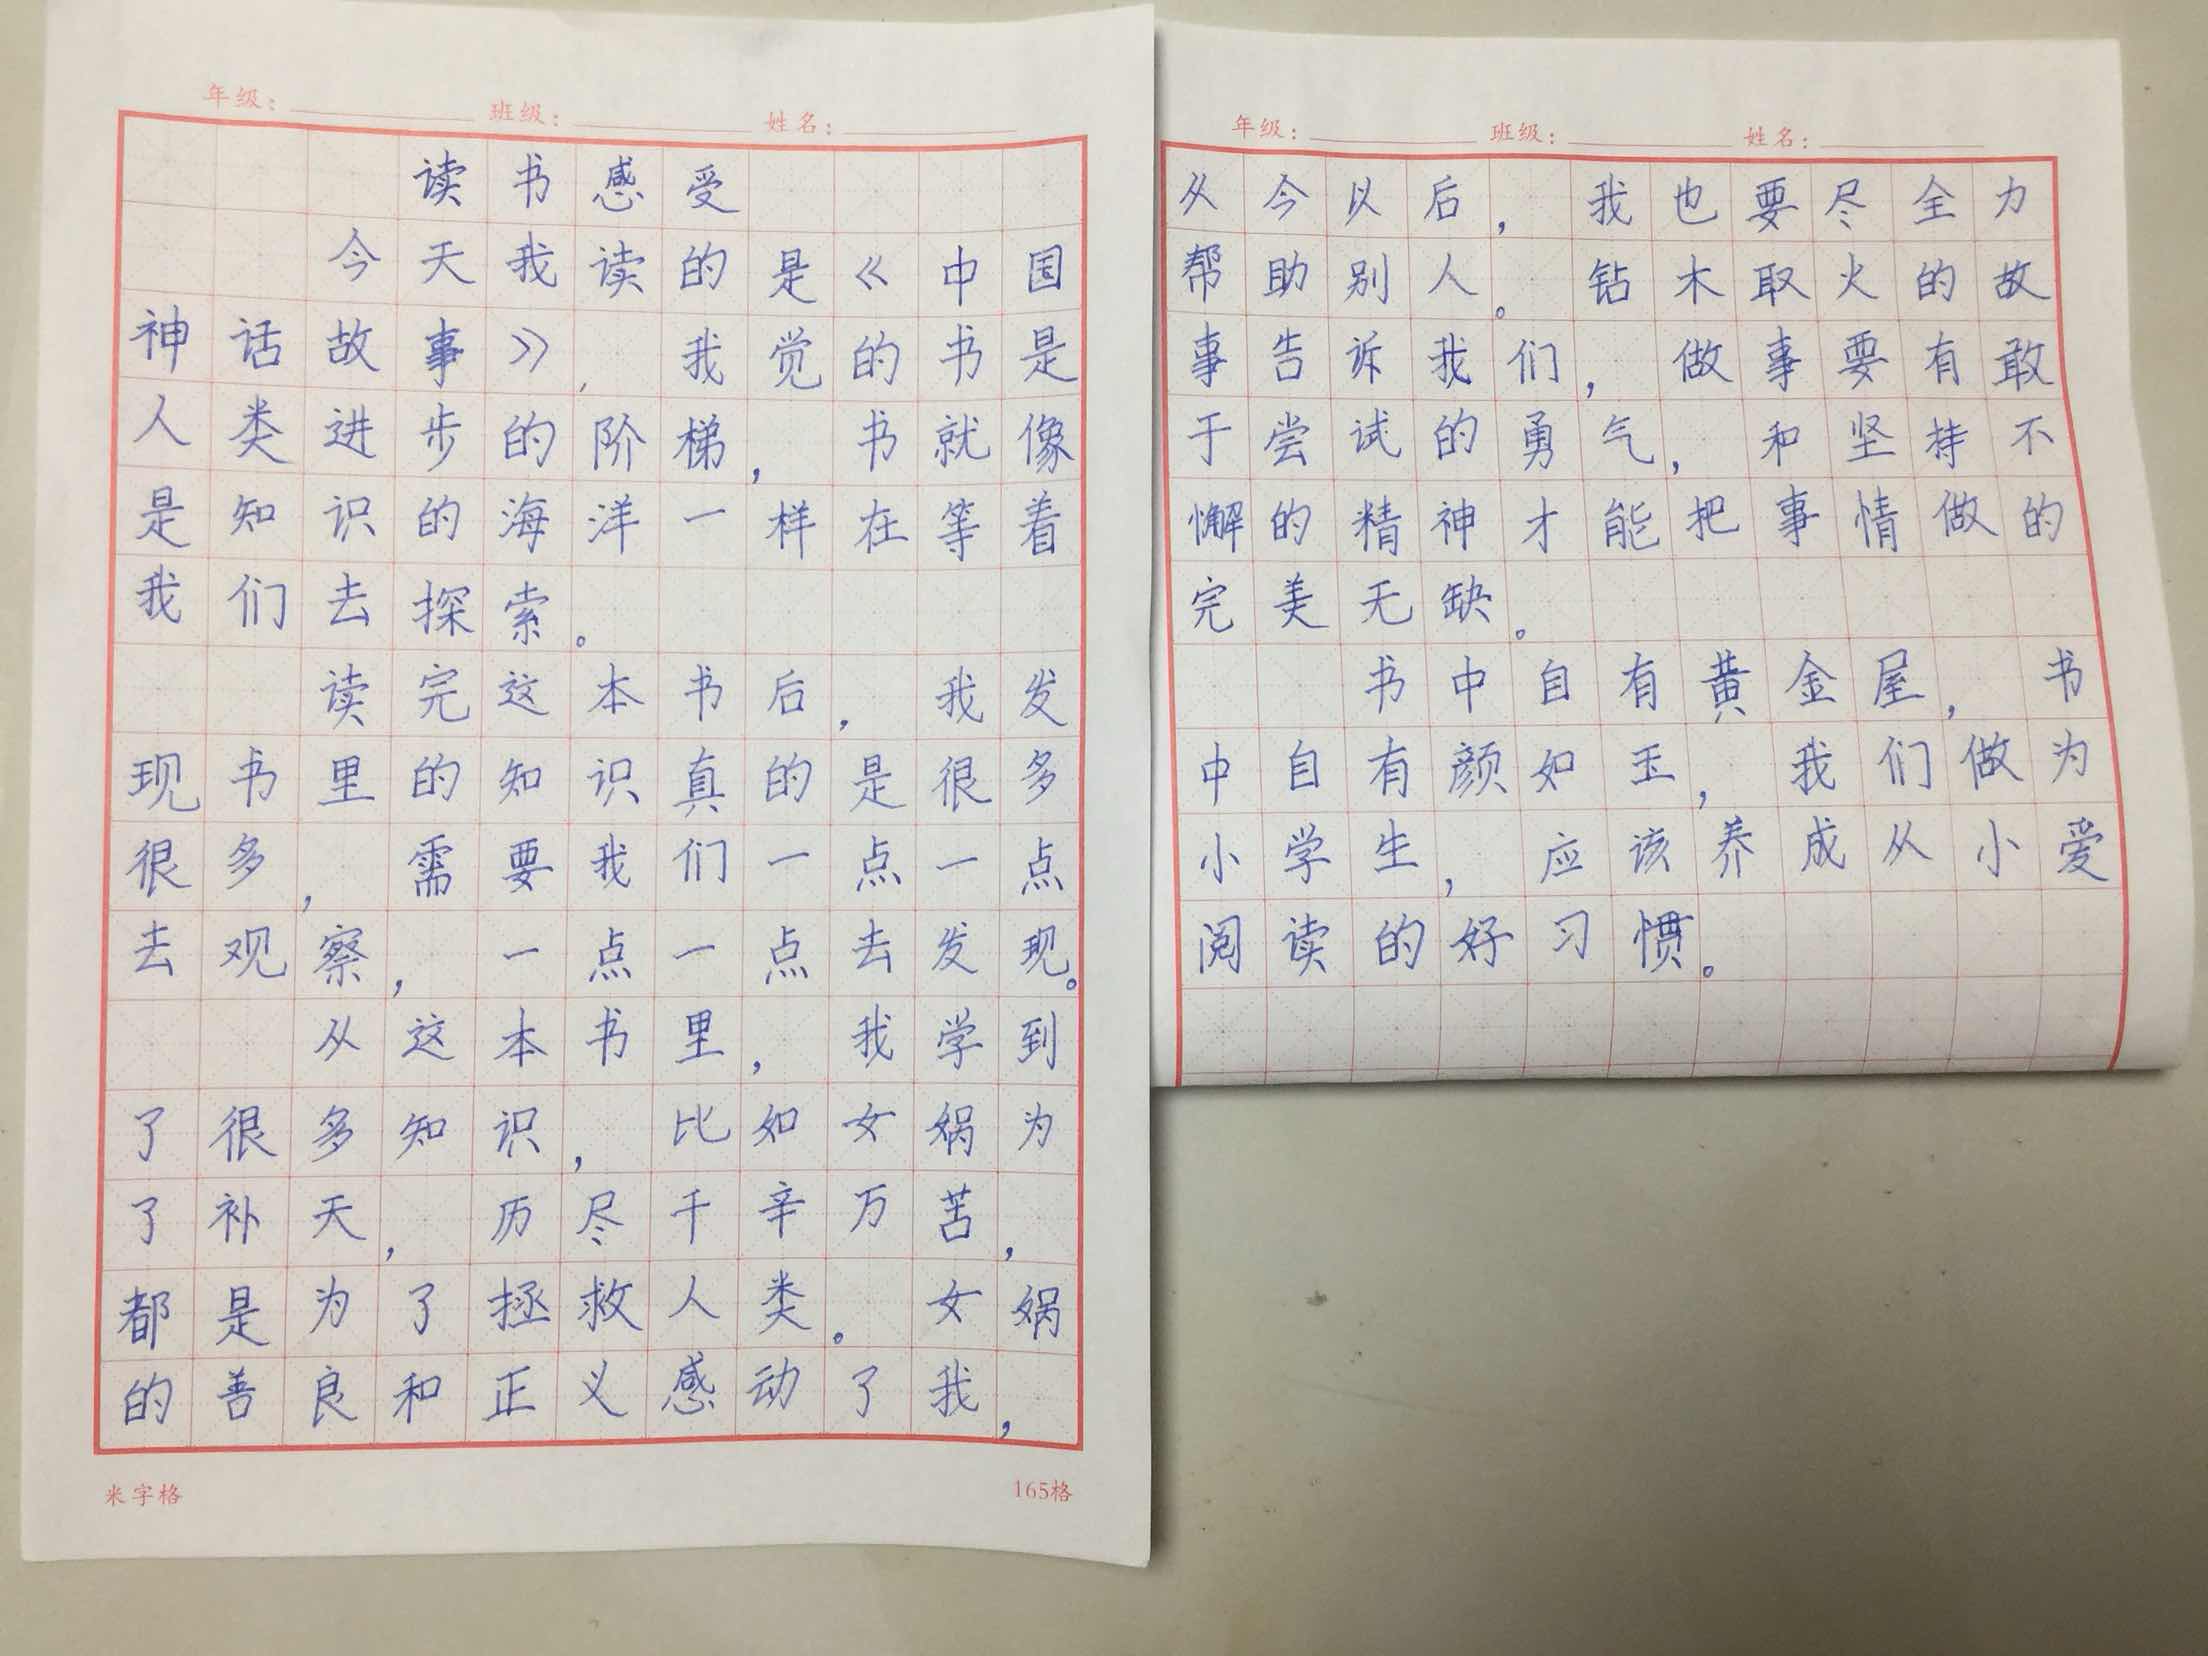 年级： 班级： 姓名：
读书感受
今天我读的是《中国
神话故事》，我觉的书是
人类进步的阶梯，书就像
是知识的海洋一样在等着
我们去探索。
读完这本书后，我发
现书里的知识真的是很多
很多，需要我们一点一点
去观察，一点一点去发现。
从这本书里，我学到
了很多知识，比如女娲为
了补天，历尽千辛万苦，
都是为了拯救人类。女娲
的善良和正义感动了我，
米字格 165格
年级： 班级： 姓名：
从今以后，我也要尽全力
帮助别人。钻木取火的故
事告诉我们，做事要有敢
于尝试的勇气，和坚持不
懈的精神才能把事情做的
完美无缺。
书中自有黄金屋，书
中自有颜如玉，我们做为
小学生，应该养成从小爱
阅读的好习惯。